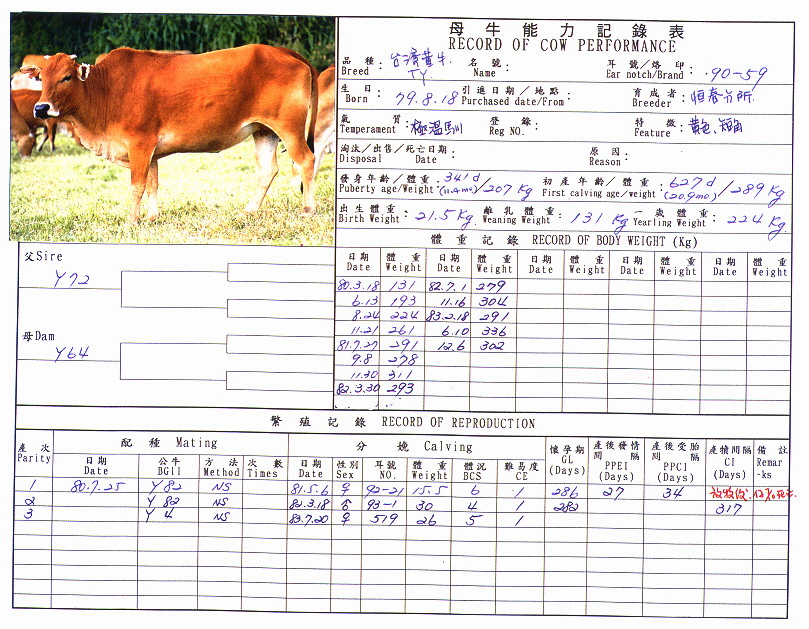 母牛能力記錄表
RECORD OF COW PERFORMANCE
品種: 台灣黃牛 名號: 耳號/烙印:
Breed TY. Name Ear notch/Brand 90-59
生日: 79.8.18 引進日期/地點: 育成者: 恒春分所.
Born Purchased date/From Breeder
氣質: 極溫馴 登錄: 特徵: 黃色、短角
Temperament Reg NO. Feature
淘汰/出售/死亡日期: 原因:
Disposal Date: Reason
發身年齡/體重: 341d 初產年齡/體重: 627d
Puberty age/Weight (11.4mo)/207 Kg First calving age/weight (20.9mo)/289 Kg
出生體重: 21.5 Kg 離乳體重: 131 Kg 一歲體重: 224 Kg.
Birth Weight Weaning Weight Yearling Weight
體重記錄 RECORD OF BODY WEIGHT (Kg)
日期 體重 日期 體重 日期 體重 日期 體重 日期 體重
Date Weight Date Weight Date Weight Date Weight Date Weight
80.3.18 131 82.7.1 279
6.13 193 11.16 304
8.24 224 83.2.18 291
11.21 261 6.10 336
81.7.27 291 12.6 302
9.8 278
11.30 311
82.3.30 293
父Sire
Y72
母Dam
Y64
繁殖記錄 RECORD OF REPRODUCTION
產次 配種 Mating 分娩 Calving 懷孕期 產後發情間隔 產後受胎間隔 產犢間隔 備註
Parity 日期 公牛 方法 次數 日期 性別 耳號 體重 體況 難易度 GL PPEI PPCI CI Remar
Date BGll Method Times Date Sex NO. Weight BCS CE (Days) (Days) (Days) (Days) -ks
1 80.7.25 Y82 NS 81.5.6 ♀ 92-21 15.5 6 1 286 27 34
2 Y82 NS 82.3.18 ♂ 93-1 30 4 1 282 317
3 Y4 NS 83.7.20 ♀ 519 26 5 1